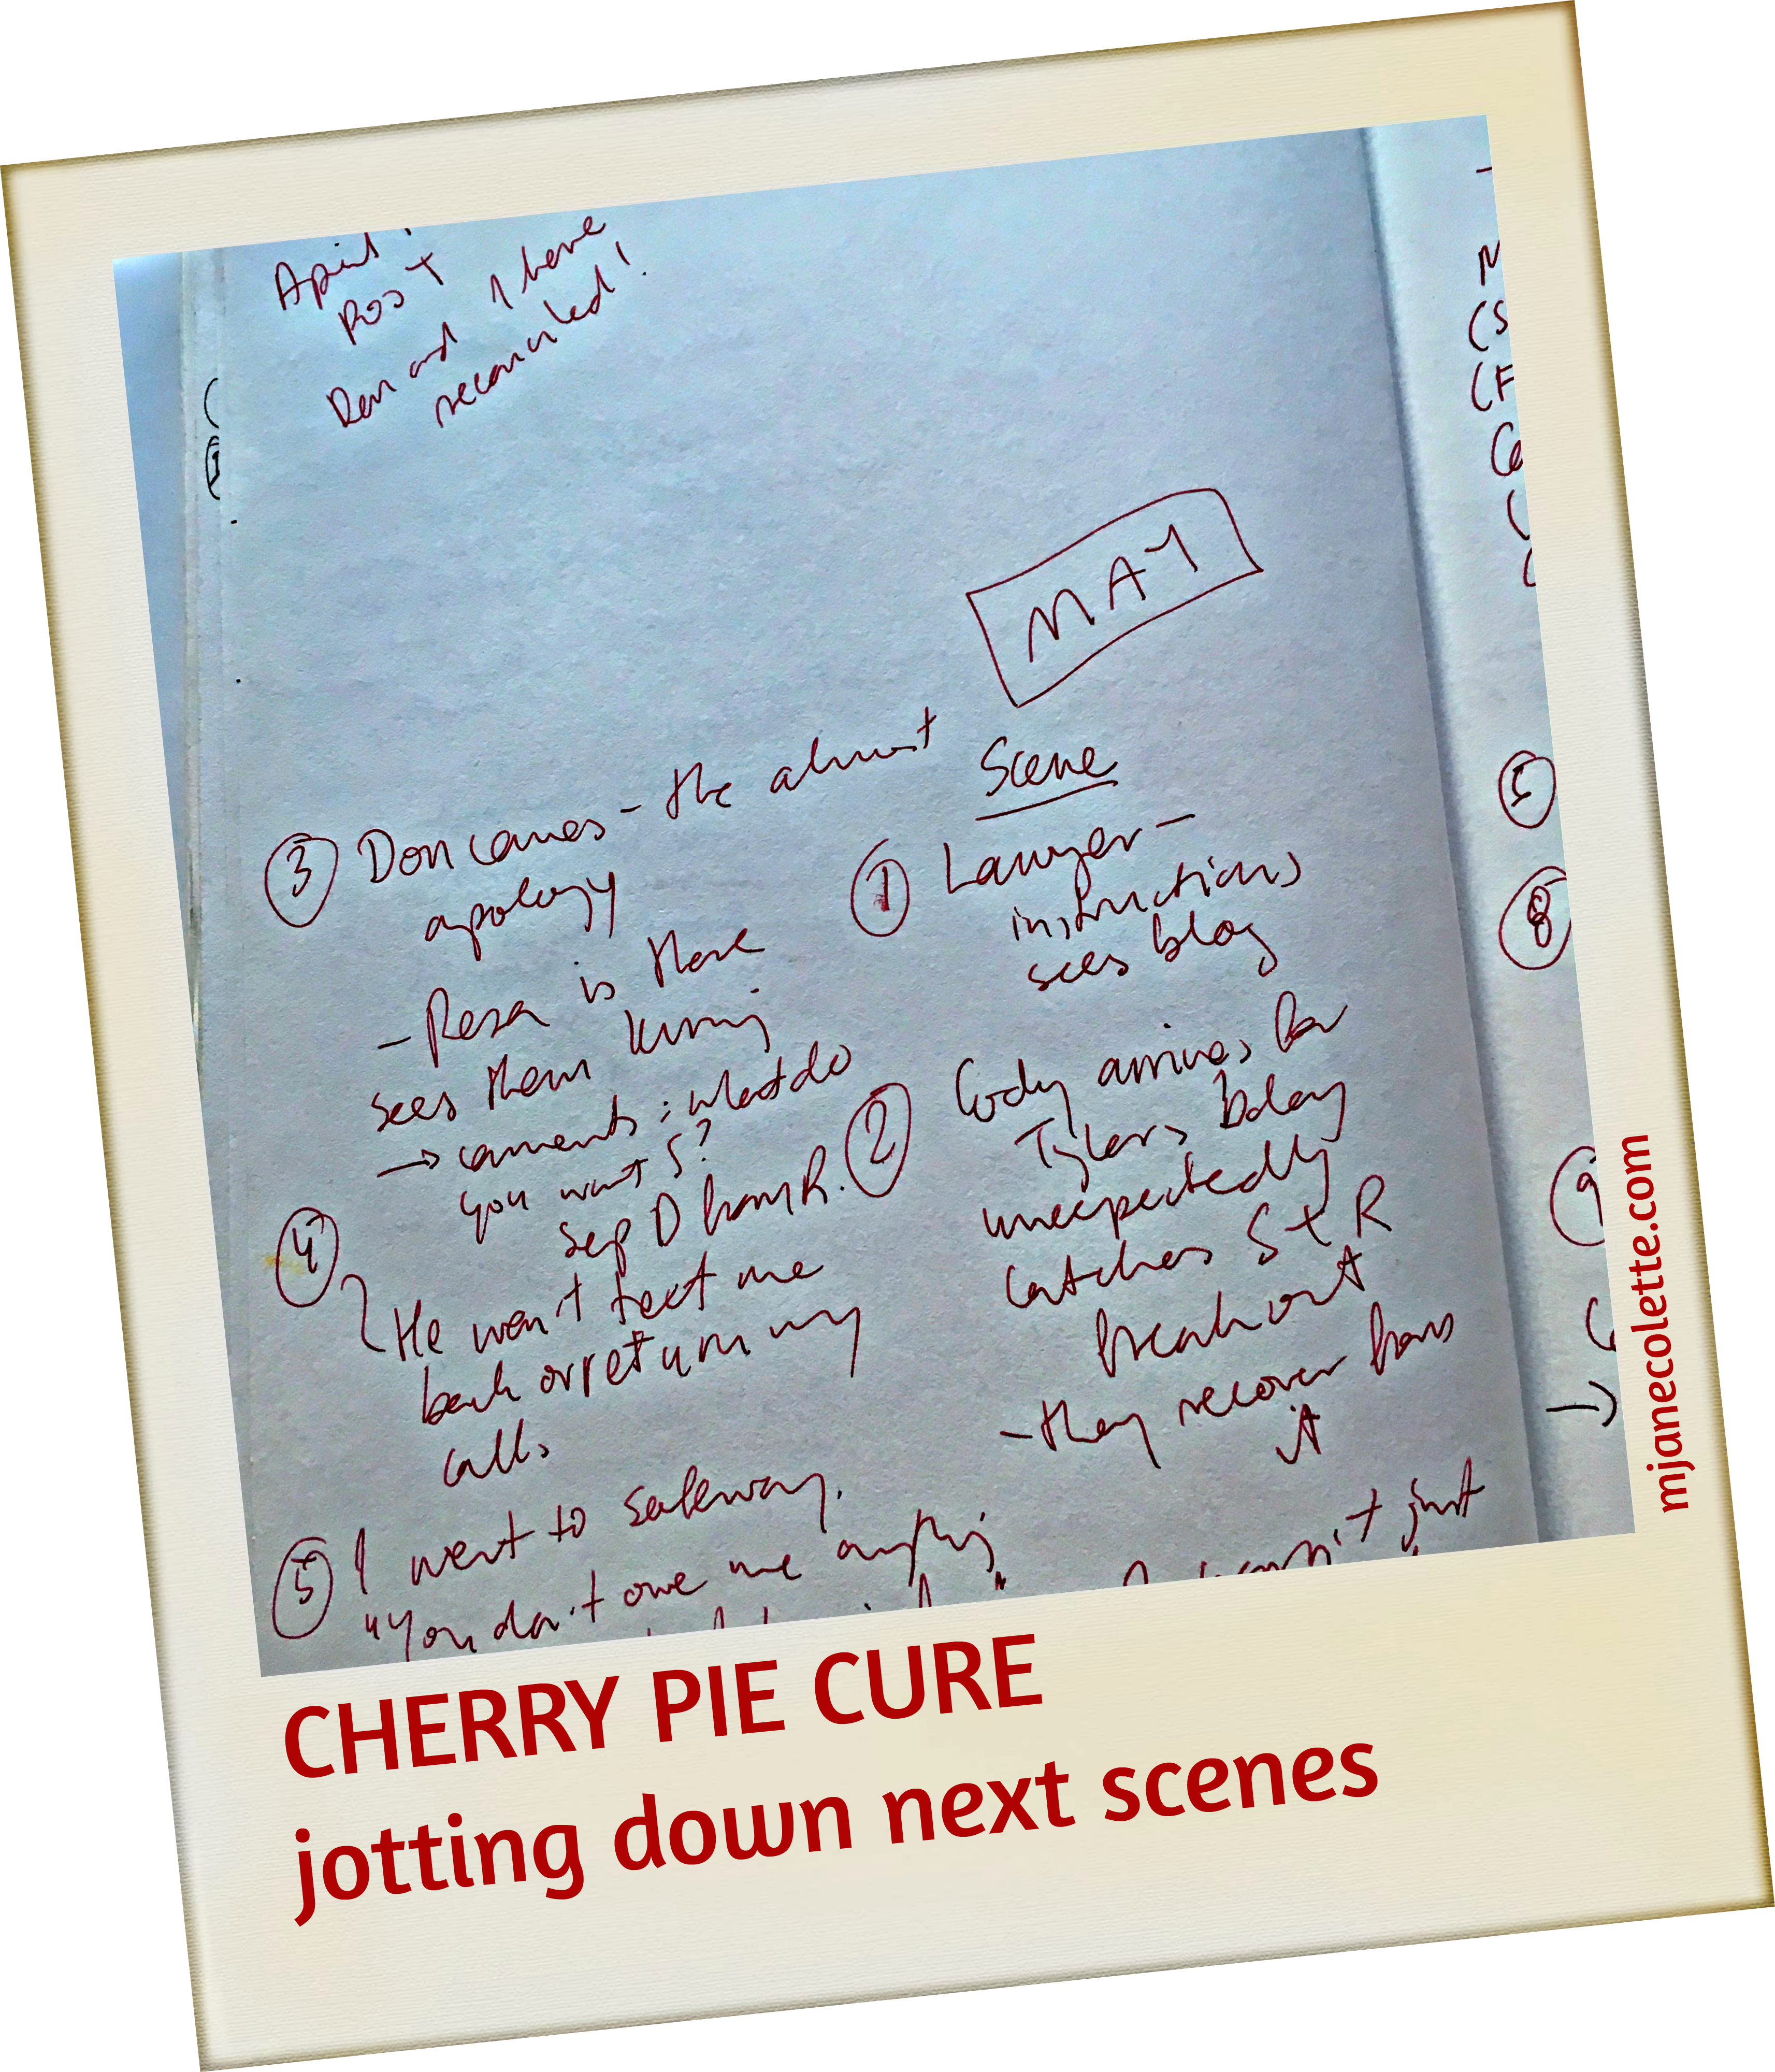 April
Post
Don and I have
reconciled!
MAY
Scene
① Lawyer –
instructions
sees blog
② Cody arrives for
Tyler's bday
unexpectedly
catches S + R
freak out
– they recover from
it
③ Don comes – the almost
apology
– Reza is there
sees them kissing
→ comments: what do
you want S?
sep D from R.
④ He won't text me
back or return my
calls
⑤ I went to Safeway.
"You don't owe me anything
just
⑤
⑧
⑨
CHERRY PIE CURE
jotting down next scenes
mjanecolette.com